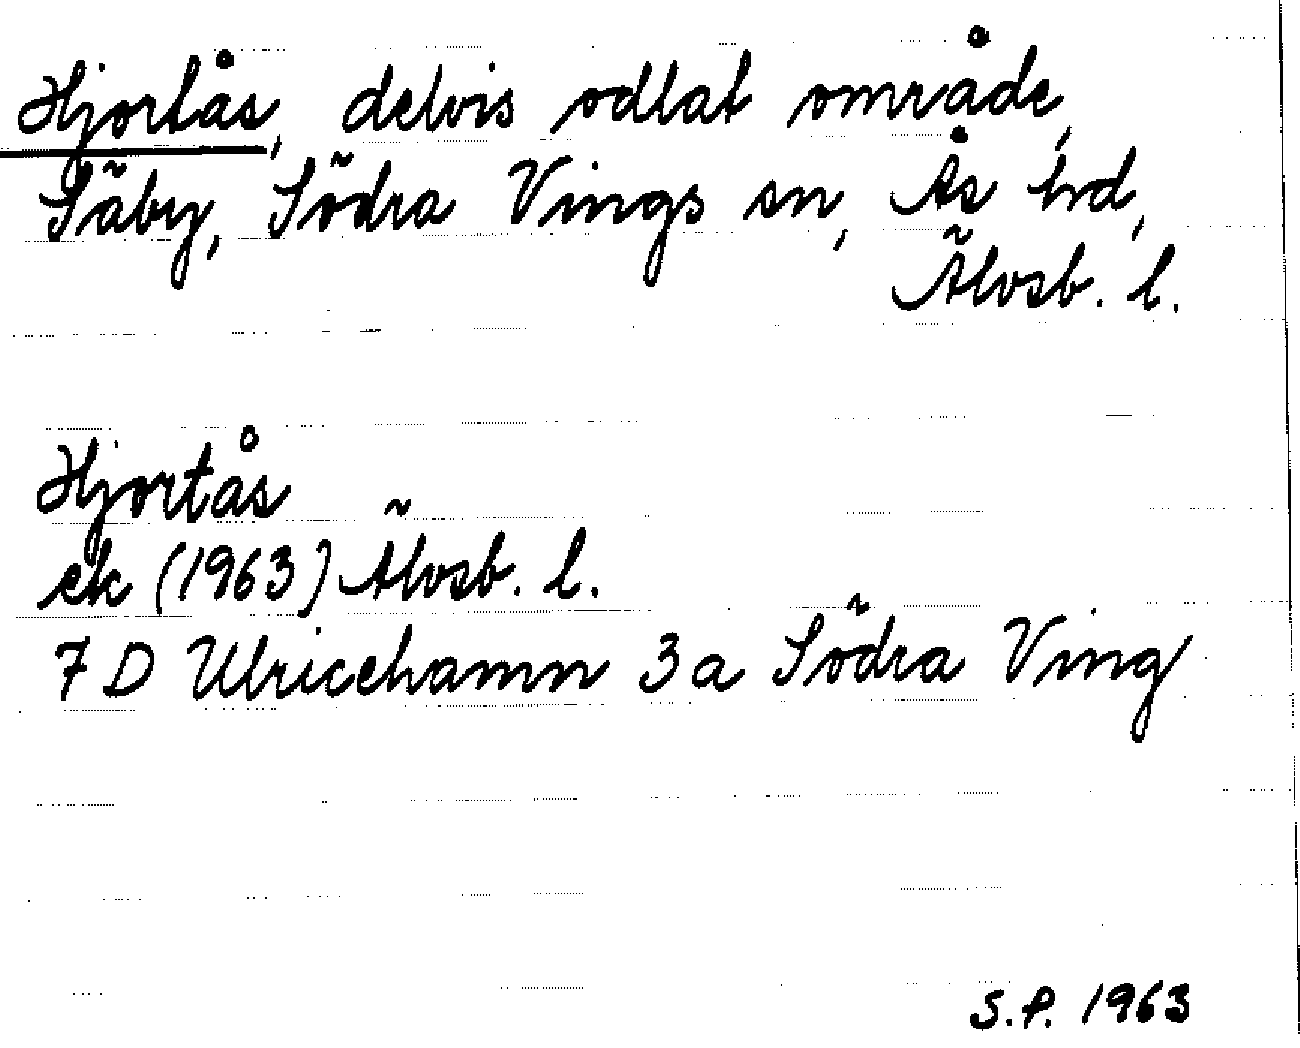 Hjortås, delvis odlat område,
Säby, Södra Vings sn, Ås hd,
Älvsb. l.
Hjortås
ek (1963) Älvsb. l.
7 D Ulricehamn 3 a Södra Ving
S.P. 1963